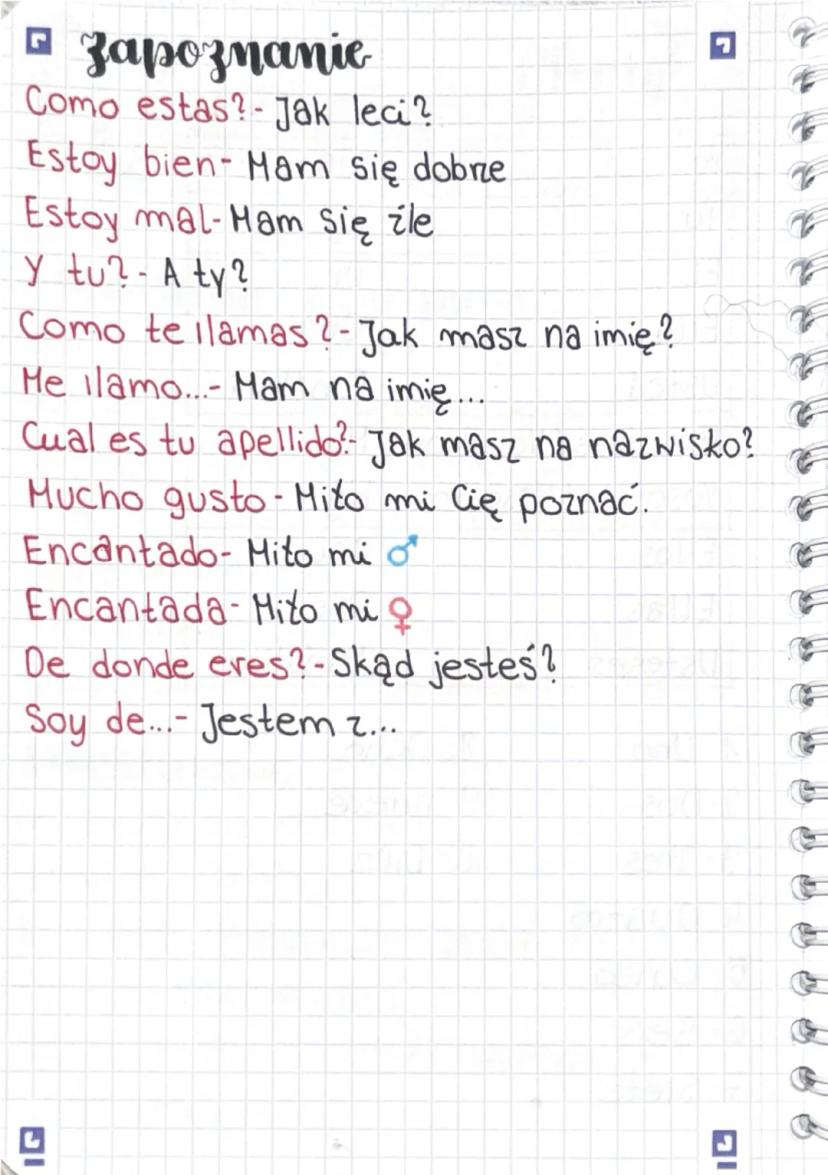 zapoznanie
Como estas? - Jak leci?
Estoy bien - Mam się dobrze
Estoy mal - Mam się źle
Y tu? - A ty?
Como te llamas? - Jak masz na imię?
Me llamo... - Mam na imię...
Cual es tu apellido? - Jak masz na nazwisko?
Mucho gusto - Miło mi Cię poznać.
Encantado - Miło mi ♂
Encantada - Miło mi ♀
De donde eres? - Skąd jesteś?
Soy de... - Jestem z...